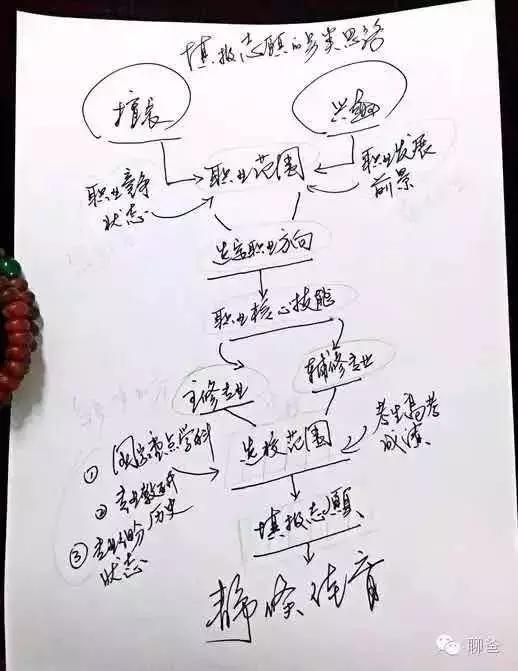 填报志愿的另类思路
擅长
兴趣
职业竞争
状态
职业范围
职业发展
前景
选定职业方向
职业核心技能
主修专业
辅修专业
① 国家重点学科
② 专业教研
历史
③ 专业
状态
选校范围
考生高考
成绩
填报志愿
静候佳音
聊爸